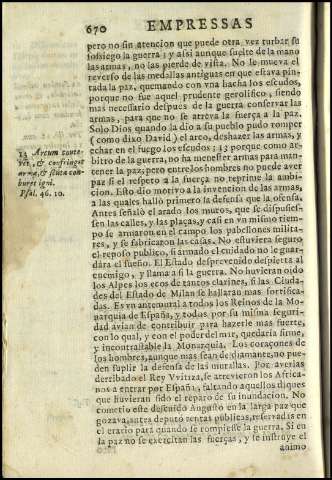 670 EMPRESSAS
pero no sin atencion que puede otra vez turbar su
sosiego la guerra; y assi aunque suelte de la mano
las armas, no las pierde de vista. No le mueva el
reverso de las medallas antiguas en que estava pin-
tada la paz, quemando con vna hacha los escudos,
porque no fue aquel prudente geroglifico, siendo
mas necessario despues de la guerra conservar las
armas, para que no se atreva la fuerça a la paz.
Solo Dios quando la dio a su pueblo pudo romper
(como dixo David) el arco, deshazer las armas, y
echar en el fuego los escudos; 13 porque como ar-
bitro de la guerra, no ha menester armas para man-
tener la paz, pero entre los hombres no puede aver
paz si el respeto a la fuerça no reprime la ambi-
cion. Esto dio motivo a la invencion de las armas,
a las quales halló primero la defensa que la ofensa.
Antes señaló el arado los muros, que se dispusies-
sen las calles, y las plaças, y casi en vn mismo tiem-
po se armaron en el campo los pabellones milita-
res, y se fabricaron las casas. No estuviera seguro
el reposo publico, si armado el cuidado no le guar-
dára el sueño. El Estado desprevenido despierta al
enemigo, y llama a si la guerra. No huvieran oido
los Alpes los ecos de tantos clarines, si las Ciuda-
des del Estado de Milan se hallaran mas fortifica-
das. Es vn antemural a todos los Reinos de la Mo-
narquia de España, y todos por su misma seguri-
dad avian de contribuir para hazerle mas fuerte,
con lo qual, y con el poder del mar, quedaria firme,
y incontrastable la Monarquia. Los coraçones de
los hombres, aunque mas sean de diamante, no pue-
den suplir la defensa de las murallas. Por averlas
derribado el Rey Vvitiza, se atrevieron los Africa-
nos a entrar por España, faltando aquellos diques
que huvieran sido el reparo de su inundacion. No
cometio este descuido Augusto en la larga paz que
gozava, antes deputó rentas publicas, reservadas en
el erario para quando se rompiesse la guerra. Si en
la paz no se exercitan las fuerças, y se instruye el
animo
13 Arcum conte-
ret, & confringet
arma, & scuta com-
buret igni.
Psal. 46. 10.